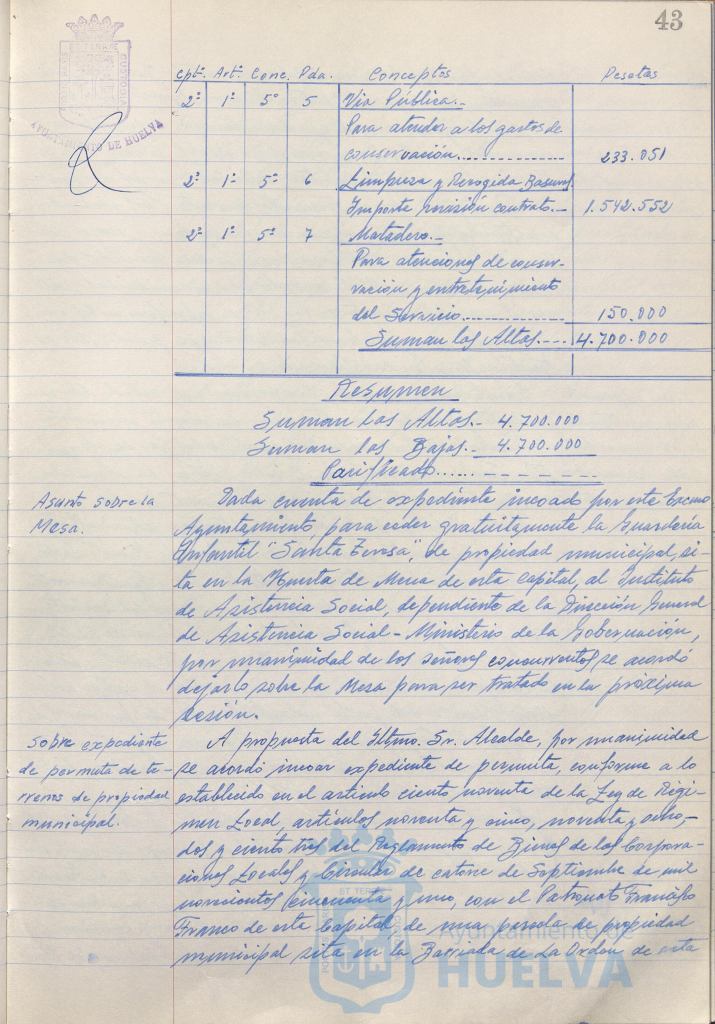 43
AYUNTAMIENTO DE HUELVA
Cptº. Artº. Conc. Pda. Conceptos Pesetas
2º 1º 5º 5 Via Pública.-
Para atender a los gastos de
conservación............ 233.051
2º 1º 5º 6 Limpieza y Recogida Basuras.
Importe revisión contrato.- 1.542.552
2º 1º 5º 7 Matadero.-
Para atenciones de conser-
vación y entretenimiento
del Servicio............ 150.000
Suman las Altas.... 4.700.000
Resumen
Suman las Altas.- 4.700.000
Suman las Bajas.- 4.700.000
Parificado...... - - - - - -
Asunto sobre la
Mesa.
Dada cuenta de expediente incoado por este Excmo
Ayuntamiento, para ceder gratuitamente la Guardería
Infantil "Santa Teresa", de propiedad municipal, si-
ta en la Huerta de Mena de esta capital, al Instituto
de Asistencia Social, dependiente de la Dirección General
de Asistencia Social - Ministerio de la Gobernación,
por unanimidad de los señores concurrentes se acordó
dejarlo sobre la Mesa para ser tratado en la próxima
sesión.
Sobre expediente
de permuta de te-
rrenos de propiedad
municipal.
A propuesta del Iltmo. Sr. Alcalde, por unanimidad
se acordó incoar expediente de permuta, conforme a lo
establecido en el artículo ciento noventa de la Ley de Régi-
men Local, artículos noventa y cinco, noventa y ocho,-
dos y ciento tres del Reglamento de Bienes de las Corpora-
ciones Locales y Circular de catorce de Septiembre de mil
novecientos cincuenta y uno, con el Patronato Francisco
Franco de esta Capital, de una parcela de propiedad
municipal sita en la Barriada de La Orden de esta
Ayuntamiento de
HUELVA